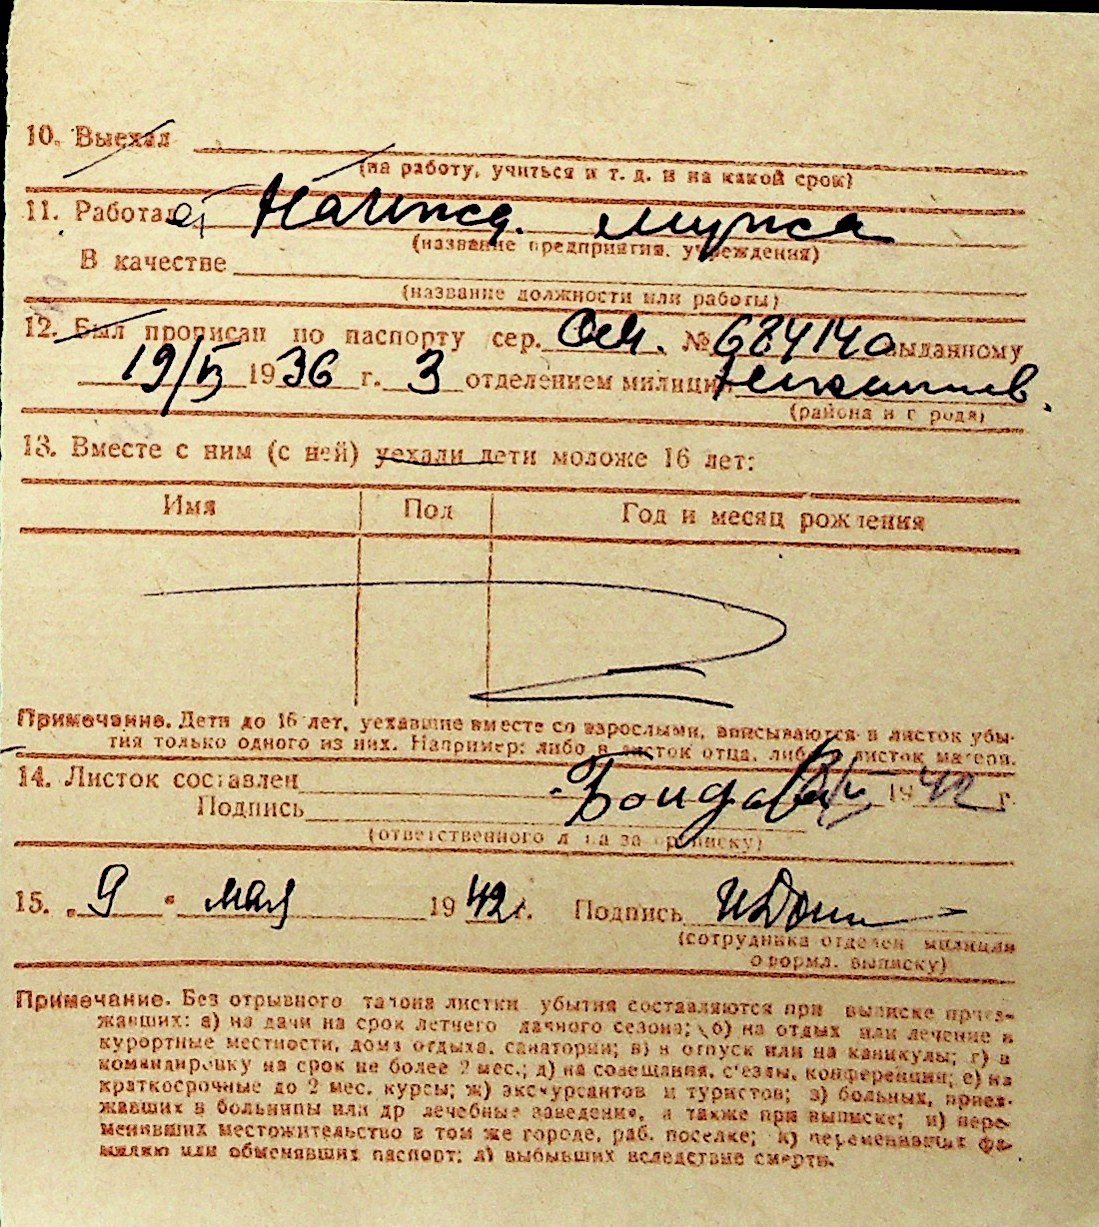 10. Выехал
(на работу, учиться и т. д. и на какой срок)
11. Работал от мужа
(название предприятия, учреждения)
В качестве
(название должности или работы)
12. Был прописан по паспорту сер. № 684140 выданному
19/ 1936 г. 3 отделением милиции
(района и города)
13. Вместе с ним (с ней) уехали дети моложе 16 лет:
Имя Пол Год и месяц рождения
Примечание. Дети до 16 лет, уехавшие вместе со взрослыми, вписываются в листок убы-
тия только одного из них. Например: либо в листок отца, либо в листок матери.
14. Листок составлен 1942 г.
Подпись
(ответственного лица за прописку)
15. „9" мая 1942 г. Подпись
(сотрудника отделен. милиции
оформл. выписку)
Примечание. Без отрывного талона листки убытия составляются при выписке приез-
жавших: а) на дачи на срок летнего дачного сезона; б) на отдых или лечение в
курортные местности, дома отдыха, санатории; в) в отпуск или на каникулы; г) в
командировку на срок не более 2 мес.; д) на совещания, с'езды, конференции; е) на
краткосрочные до 2 мес. курсы; ж) экскурсантов и туристов; з) больных, приез-
жавших в больницы или др лечебные заведения, а также при выписке; и) пере-
менивших местожительство в том же городе, раб. поселке; к) переменивших фа-
милию или обменявших паспорт; л) выбывших вследствие смерти.